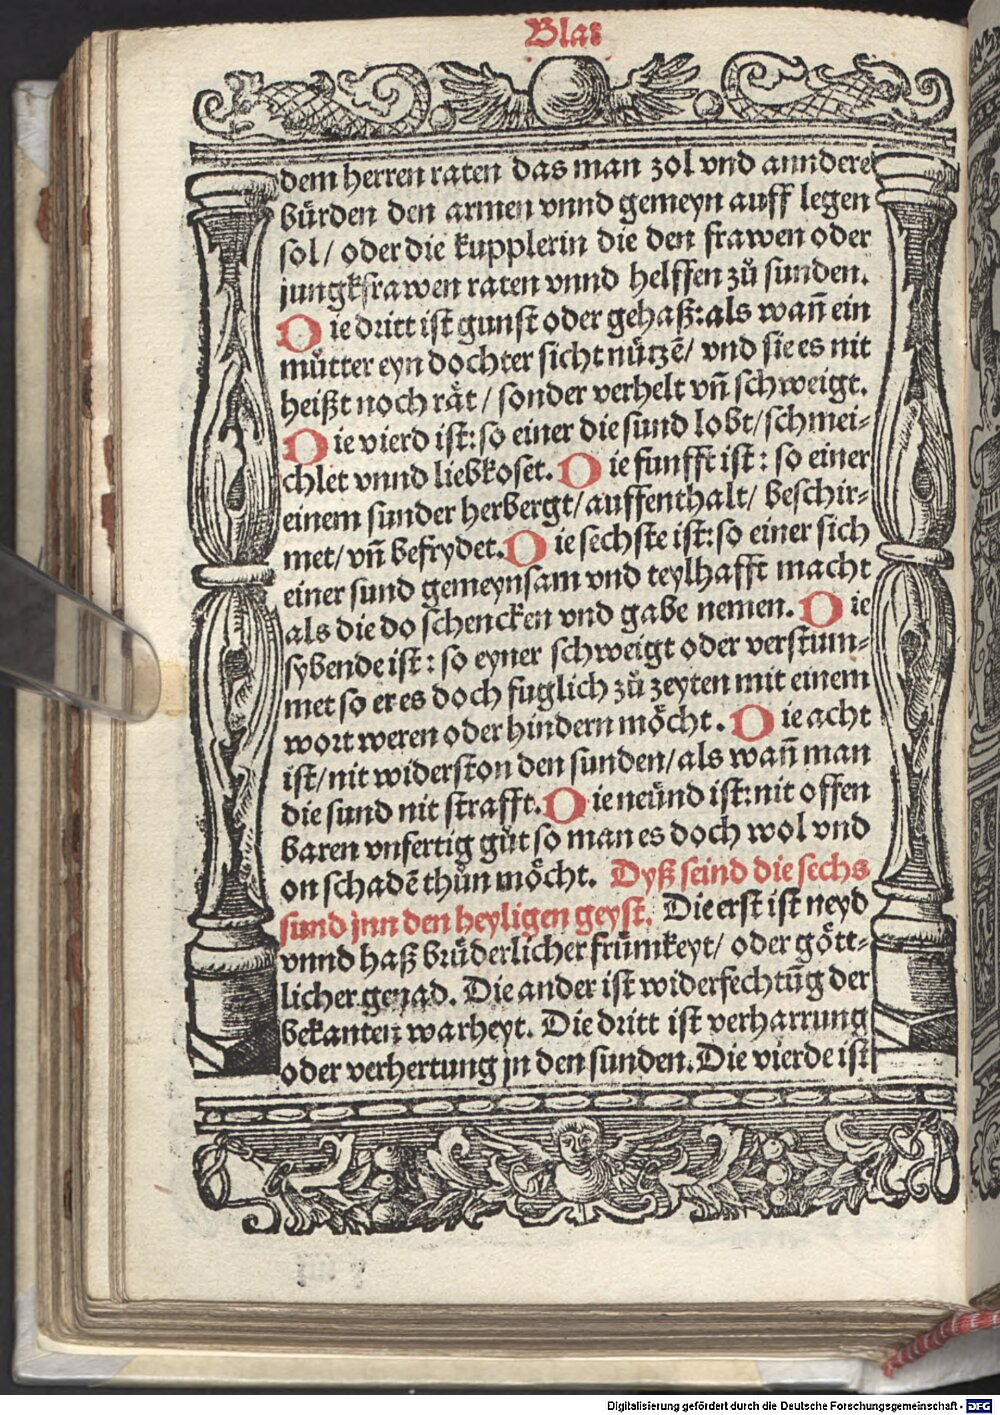 Blat
dem herren raten das man zol vnd anndere
bürden den armen vnnd gemeyn auff legen
sol/ oder die kupplerin die den frawen oder
jungkfrawen raten vnnd helffen zů sunden.
Die dritt ist gunst oder gehaß: als wañ ein
můtter eyn dochter sicht nützẽ/ vnd sie es nit
heißt noch rät/ sonder verhelt vñ schweigt.
Die vierd ist: so einer die sund lobt/ schmei=
chlet vnnd liebkoset. Die funfft ist: so einer
einem sunder herbergt/ auffenthalt/ beschir=
met/ vñ befrydet. Die sechste ist: so einer sich
einer sund gemeynsam vnd teylhafft macht
als die do schencken vnd gabe nemen. Die
sybende ist: so eyner schweigt oder verstum=
met so er es doch fuglich zů zeyten mit einem
wort weren oder hindern möcht. Die acht
ist/ nit widerston den sunden/ als wañ man
die sund nit strafft. Die neünd ist: nit offen
baren vnfertig gůt so man es doch wol vnd
on schadẽ thůn möcht. Dyß seind die sechs
sund jnn den heyligen geyst. Die erst ist neyd
vnnd haß brüderlicher frümkeyt/ oder gött=
licher genad. Die ander ist widerfechtũg der
bekanten warheyt. Die dritt ist verharrung
oder verhertung jn den sunden. Die vierde ist
Digitalisierung gefördert durch die Deutsche Forschungsgemeinschaft - DFG